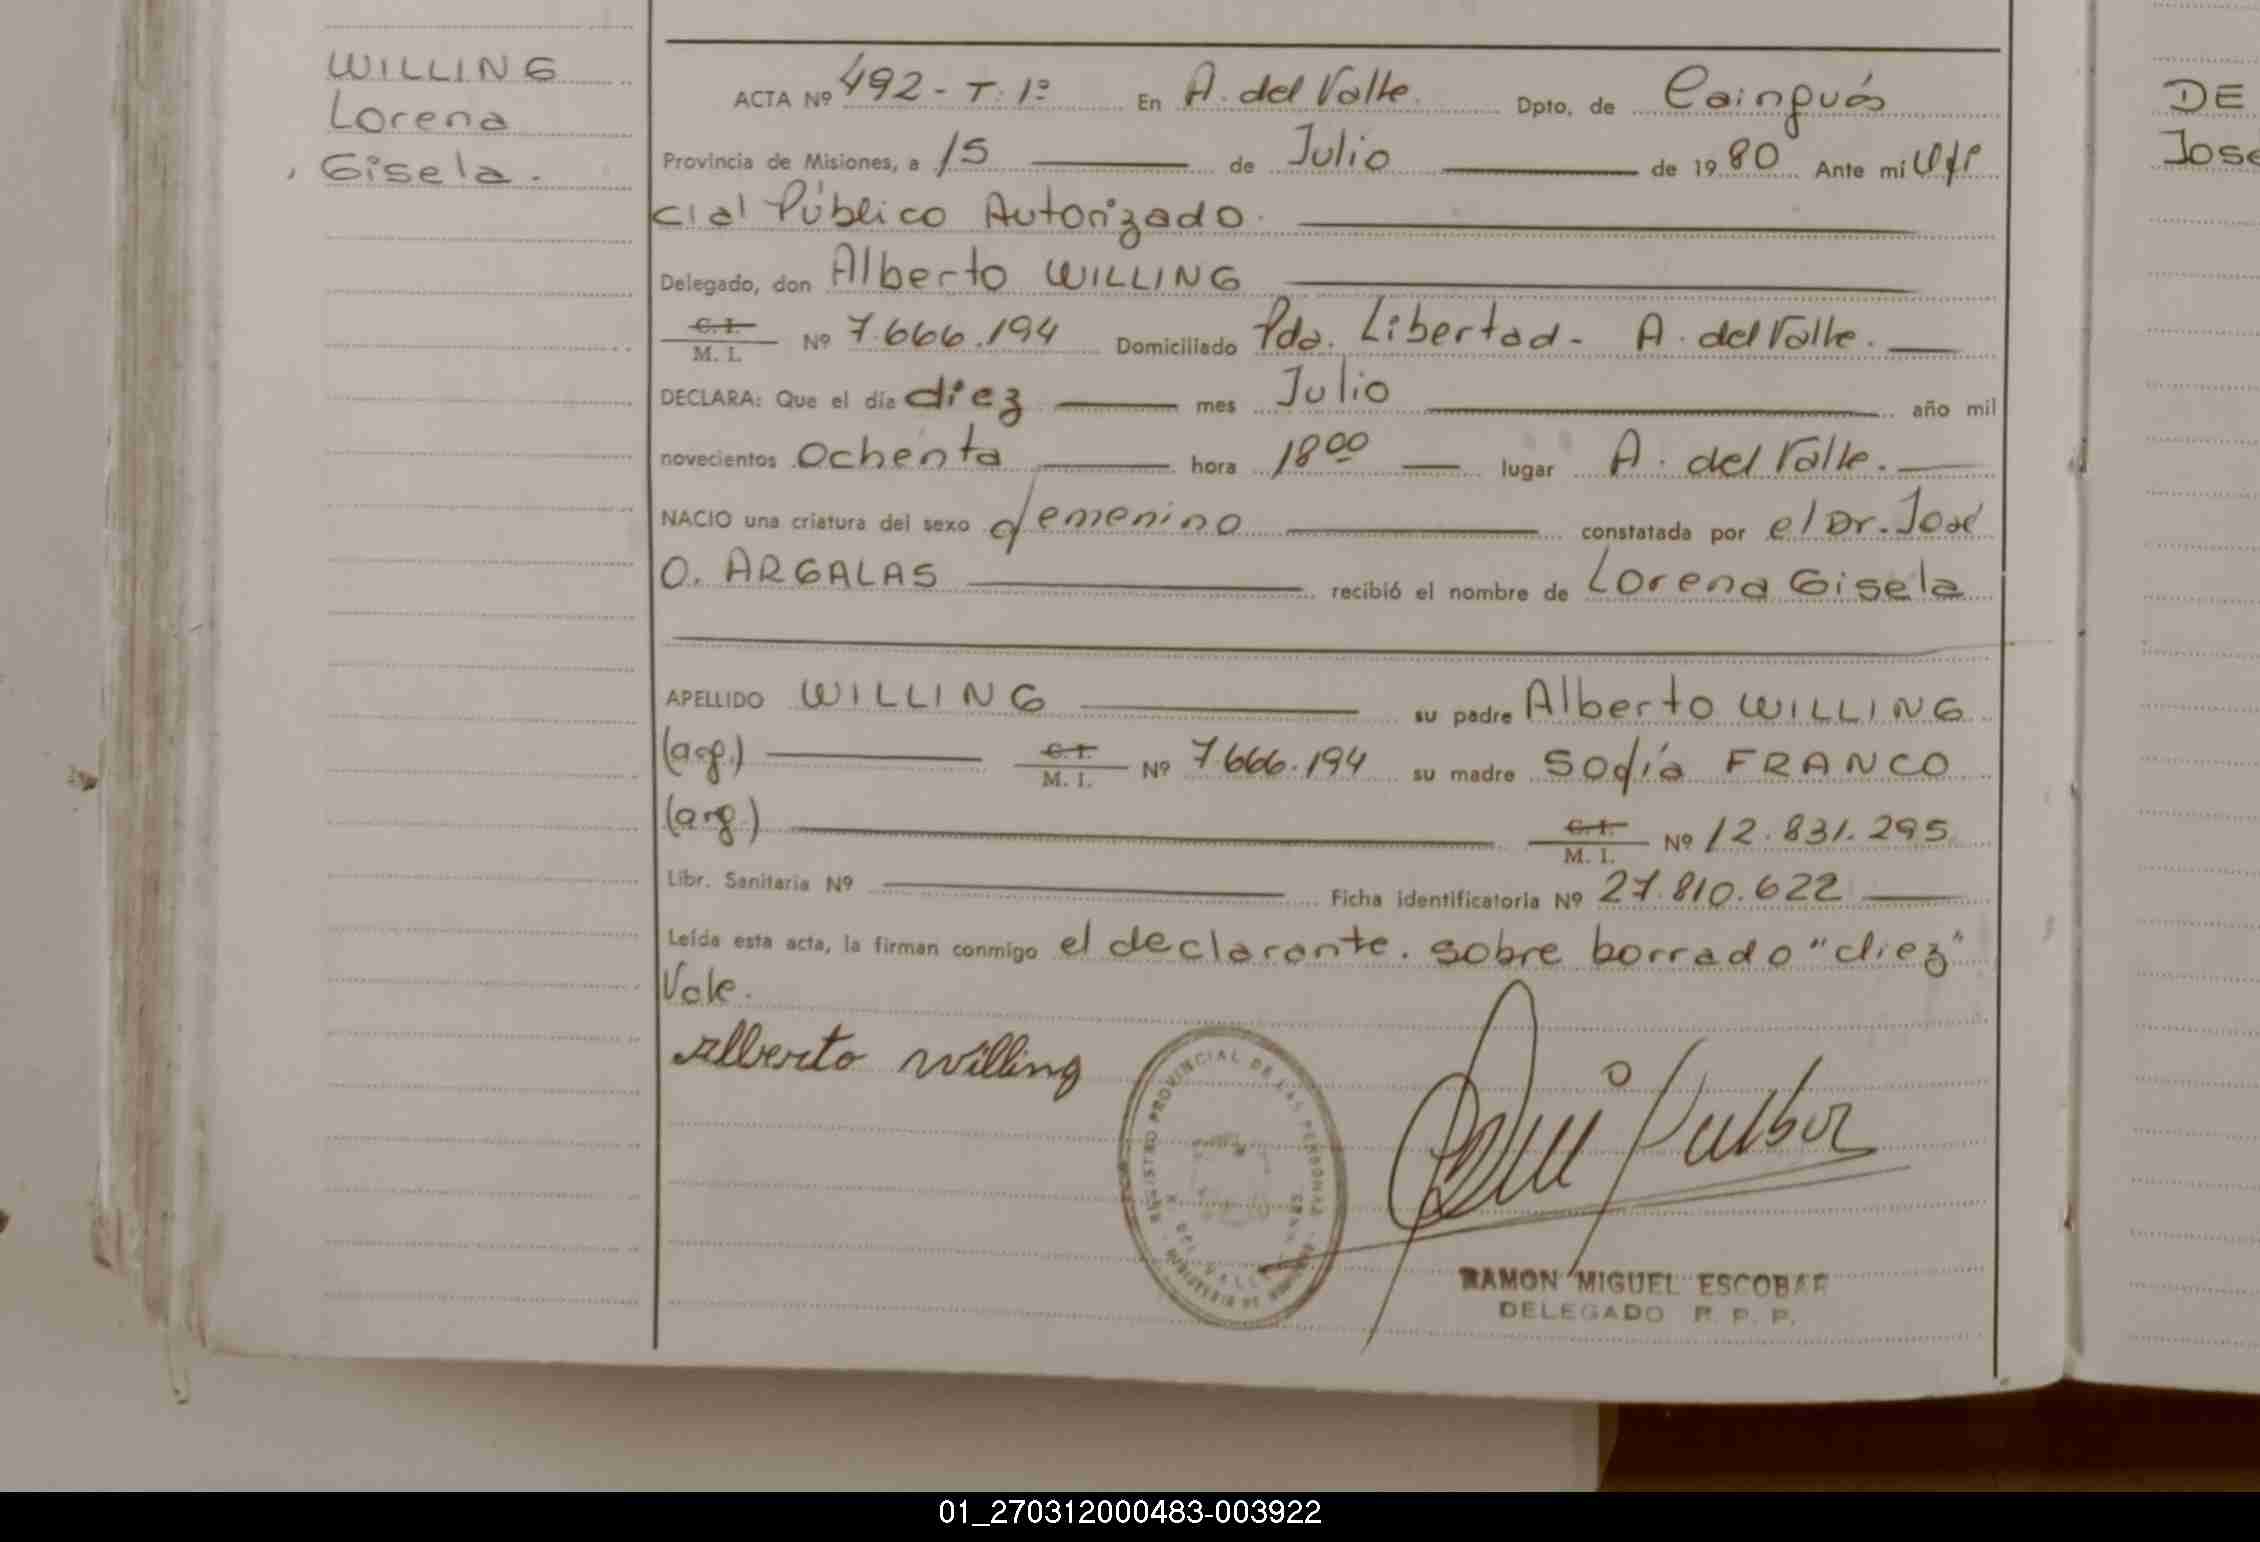 WILLING
Lorena
Gisela.
ACTA Nº 492 - T. 1º En A. del Valle. Dpto. de Cainguás
Provincia de Misiones, a 15 de Julio de 1980 Ante mí Ofi
cial Público Autorizado.
Delegado, don Alberto WILLING
C. I.
M. I. Nº 7.666.194 Domiciliado Pda. Libertad - A. del Valle.
DECLARA: Que el día diez mes Julio año mil
novecientos Ochenta hora 18 00 lugar A. del Valle.
NACIO una criatura del sexo femenino constatada por el Dr. José
O. ARGALAS recibió el nombre de Lorena Gisela
APELLIDO WILLING su padre Alberto WILLING
(arg.) C. I. M. I. Nº 7.666.194 su madre Sofía FRANCO
(arg.) C. I. M. I. Nº 12.831.295
Libr. Sanitaria Nº Ficha identificatoria Nº 27.810.622
Leída esta acta, la firman conmigo el declarante. sobre borrado "diez"
Vale.
Alberto Willing
REGISTRO PROVINCIAL DE LAS PERSONAS
DEL VALLE
MINISTERIO DE
RAMON MIGUEL ESCOBAR
DELEGADO R. P. P.
DE
Jose
01_270312000483-003922